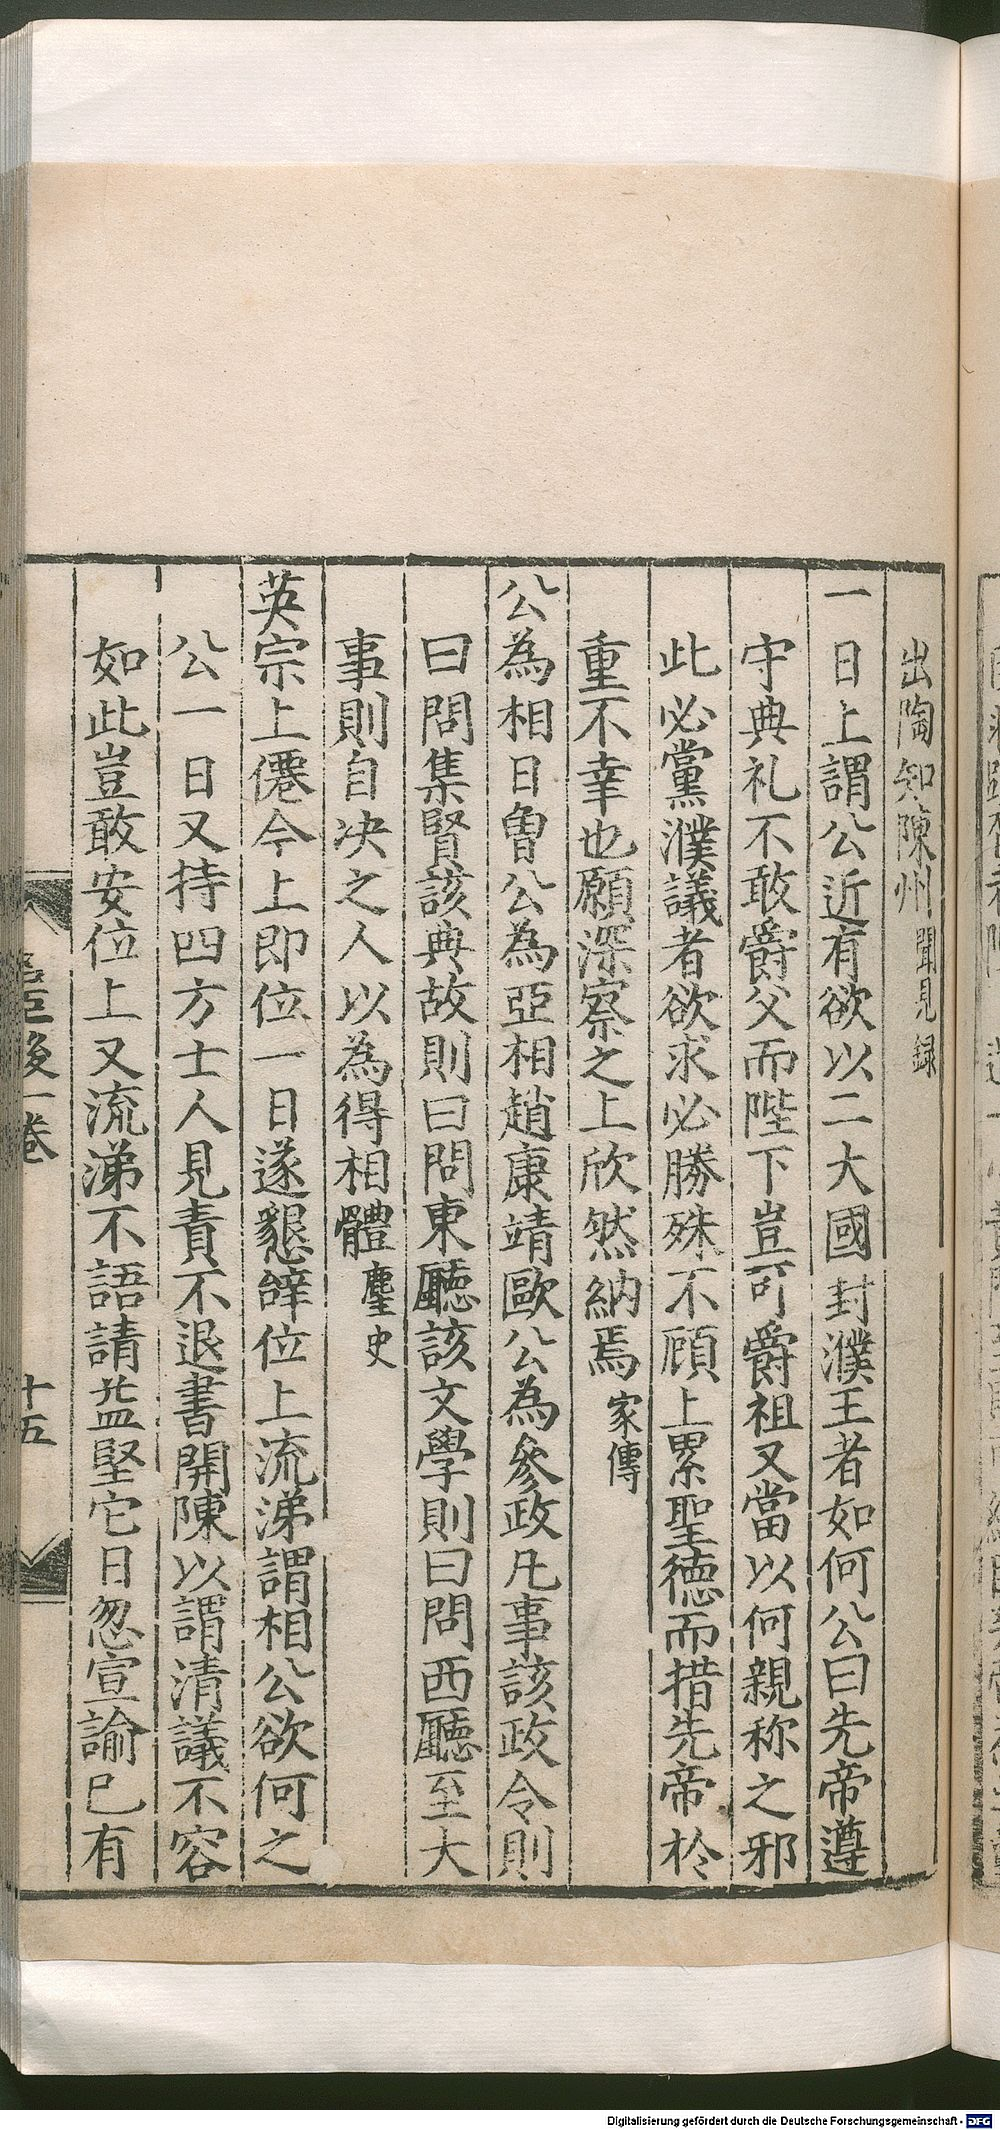 出陶知陳州聞見録
一日上謂公近有欲以二大國封濮王者如何公曰先帝遵
守典礼不敢爵父而陛下豈可爵祖又當以何親称之邪
此必黨濮議者欲求必勝殊不顧上累聖德而措先帝柃
重不幸也願深察之上欣然納焉家傳
公為相日魯公為亞相趙康靖歐公為參政凡事該政令則
曰問集賢該典故則曰問東廳該文學則曰問西廳至大
事則自决之人以為得相體麈史
英宗上僊今上即位一日遂懇辝位上流涕謂相公欲何之
公一日又持四方士人見責不退書開陳以謂清議不容
如此豈敢安位上又流涕不語請益堅它日忽宣諭已有
後一卷
十五
Digitalisierung gefördert durch die Deutsche Forschungsgemeinschaft - DFG